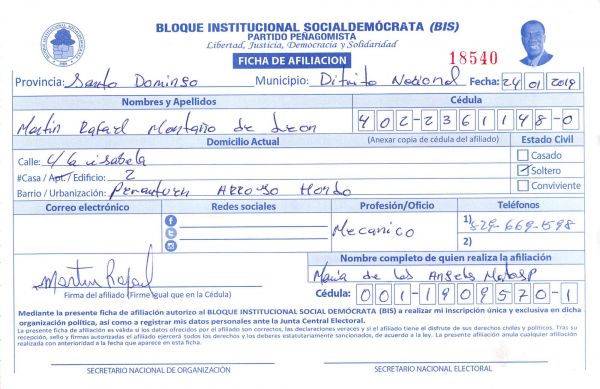 BLOQUE INSTITUCIONAL SOCIALDEMÓCRATA (BIS)
PARTIDO PEÑAGOMISTA
Libertad, Justicia, Democracia y Solidaridad
FICHA DE AFILIACION
18540
Provincia: Santo Domingo Municipio: Distrito Nacional Fecha: 24 01 2019
Nombres y Apellidos Cédula
Martin Rafael Montaño de Leon 402-2361148-0
Domicilio Actual (Anexar copia de cédula del afiliado) Estado Civil
Calle: C/ la isabela Casado
#Casa / Apt./ Edificio: 2 Soltero
Barrio / Urbanización: Arroyo Hondo Conviviente
Correo electrónico Redes sociales Profesión/Oficio Teléfonos
Mecanico 1) 829-669-1598
2)
Nombre completo de quien realiza la afiliación
Martin Rafael Maria de los Angeles
Firma del afiliado (Firme igual que en la Cédula) Cédula: 001-1909570-1
Mediante la presente ficha de afiliación autorizo al BLOQUE INSTITUCIONAL SOCIAL DEMÓCRATA (BIS) a realizar mi inscripción única y exclusiva en dicha
organización política, así como a registrar mis datos personales ante la Junta Central Electoral.
La presente ficha de afiliación es valida si los datos ofrecidos por el afiliado son correctos, las declaraciones veraces y si el afiliado tiene el disfrute de sus derechos civiles y políticos. Tras su
recepción, sello y firmas autorizadas el afiliado ejercerá todos los derechos y los deberes estatutariamente sancionados, de acuerdo a la ley. La presente afiliación anula cualquier afiliación
realizada con anterioridad a la fecha que aparece en esta ficha.
SECRETARIO NACIONAL DE ORGANIZACIÓN SECRETARIO NACIONAL ELECTORAL